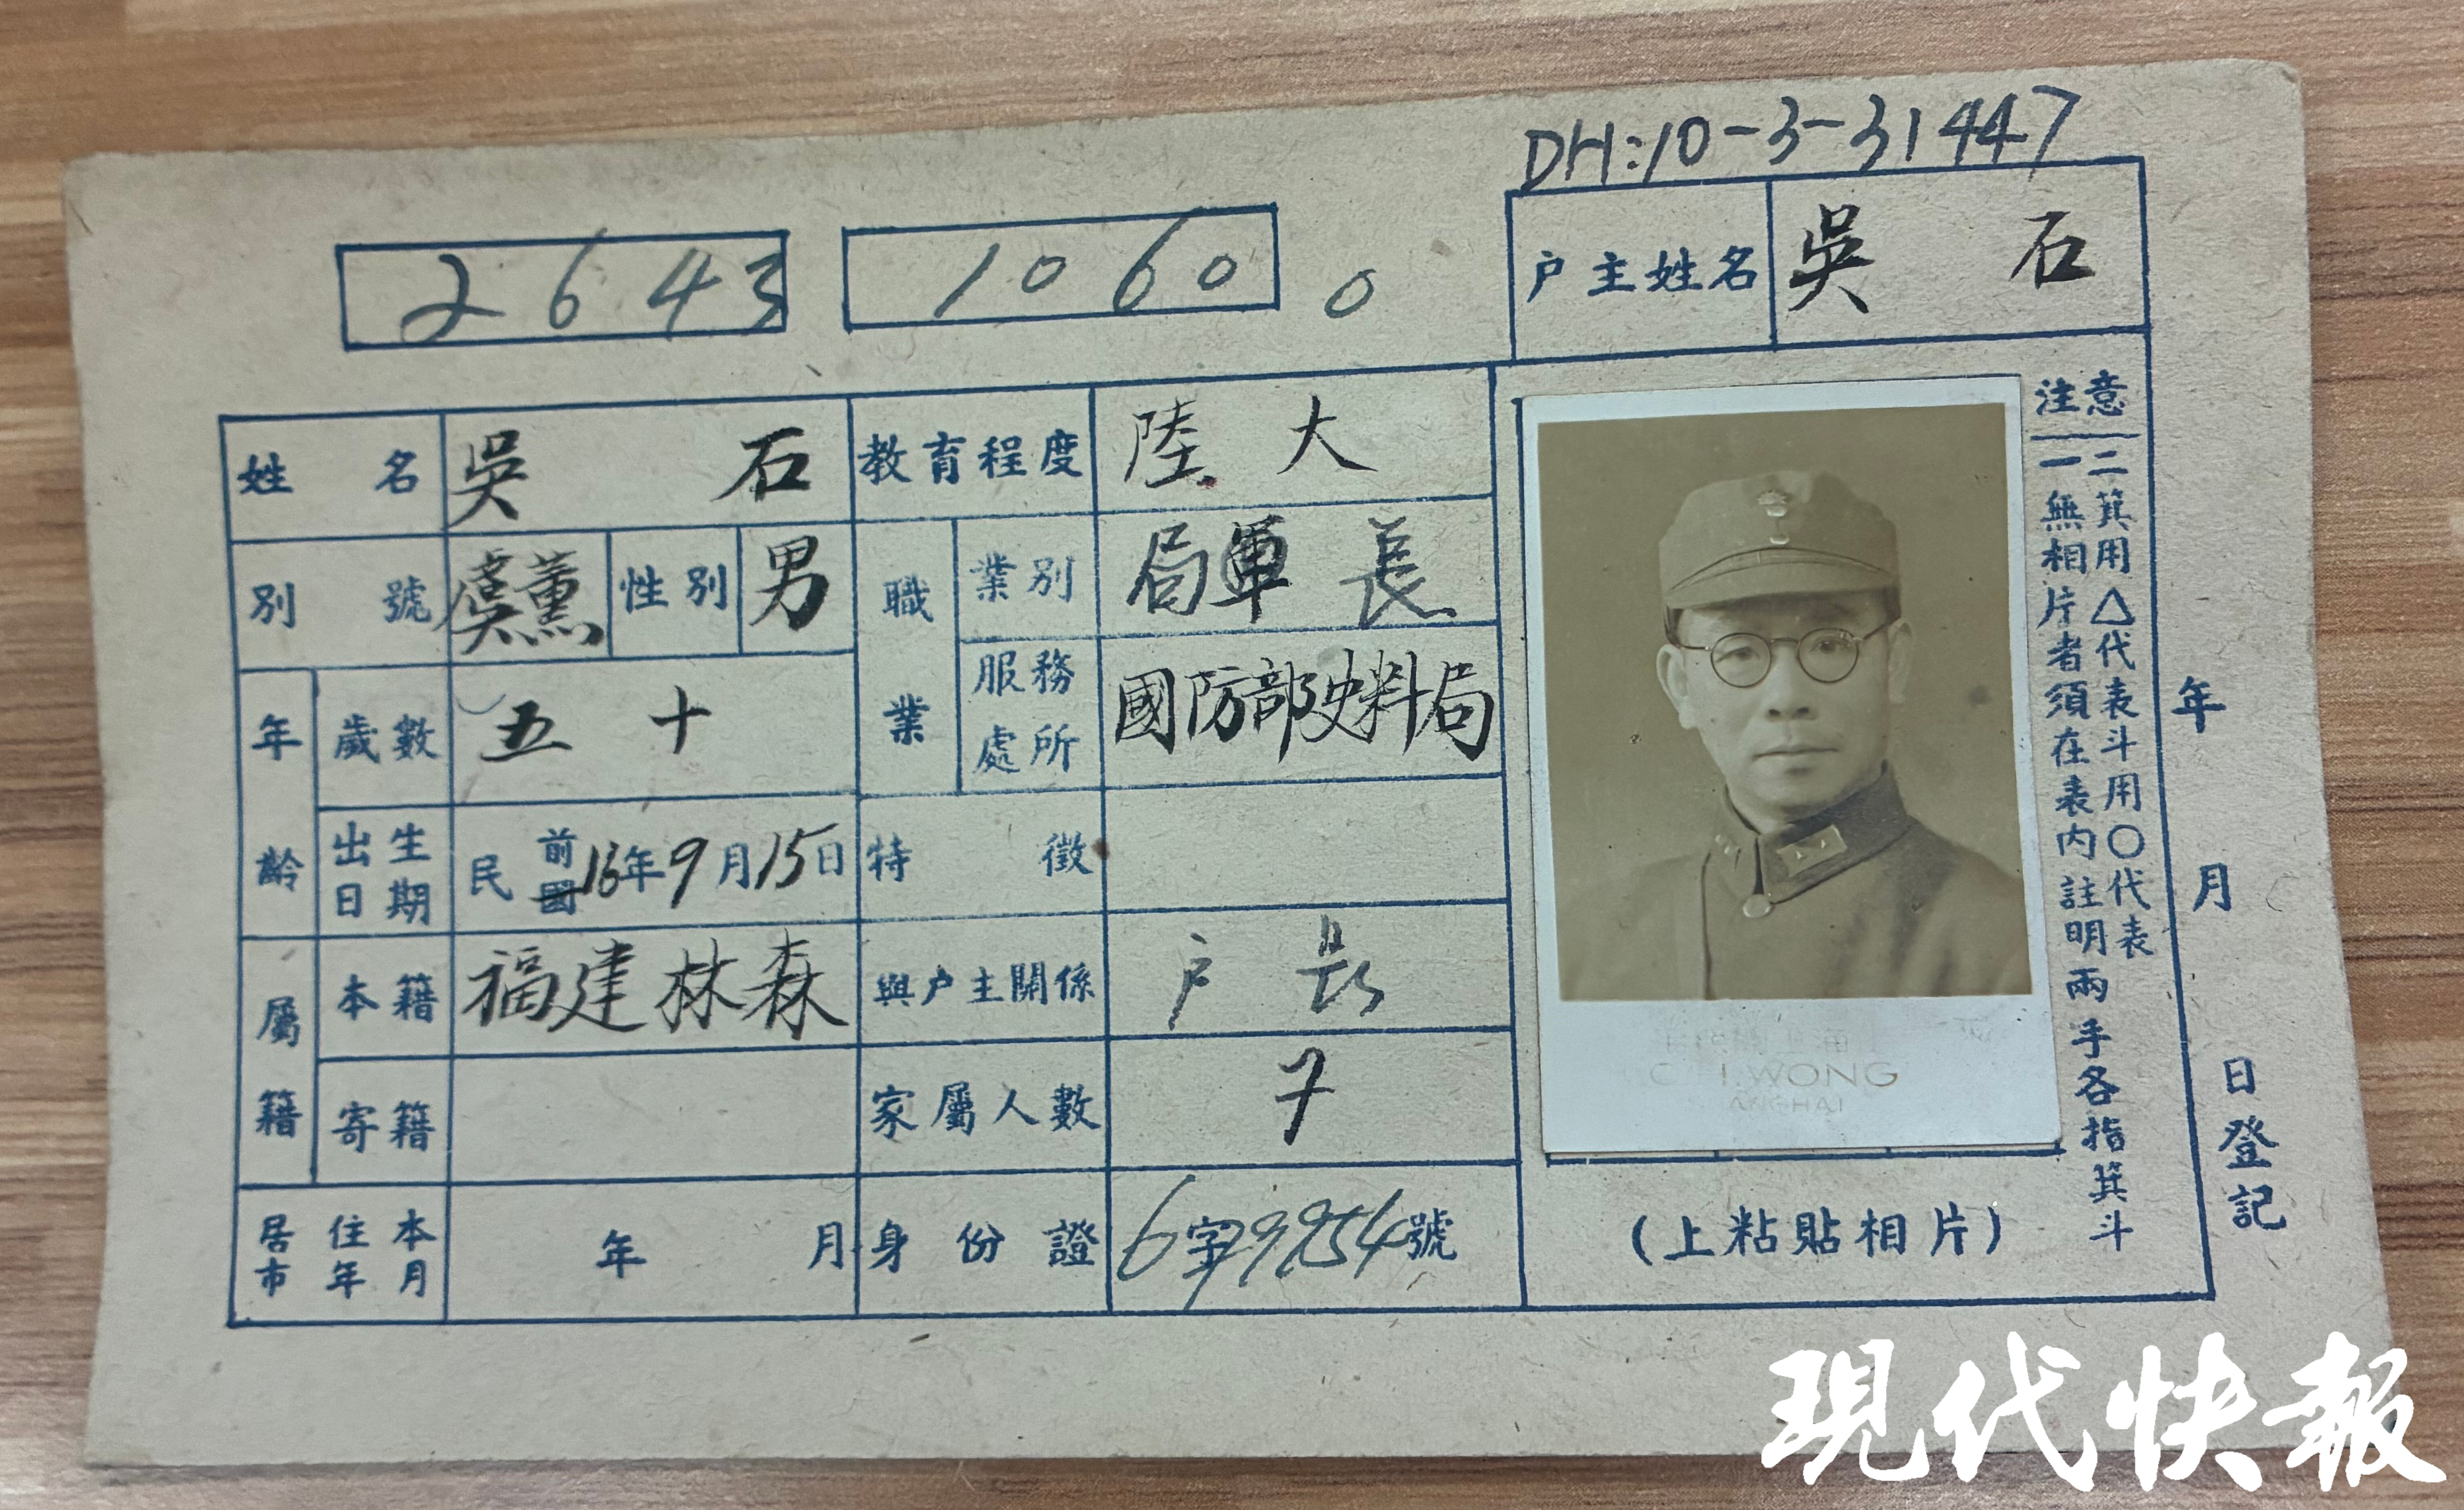 DH:10-3-31447
2643
1060 0
户主姓名 吳石
姓名 吳石 教育程度 陸大
別號 虞薰 性別 男 職業 業別 局軍長
服務處所 國防部史料局
年齡 歲數 五十
出生日期 民前國16年9月15日 特徵
屬籍 本籍 福建林森 與户主關係 户長
寄籍 家屬人數 7
居住本市年月 年 月 身份證 6字79954號
注意
一無相片者須在表內註明兩手各指箕斗
二箕用△代表斗用〇代表
(上粘貼相片)
年月日登記
WONG
ANGHAI
現代快報